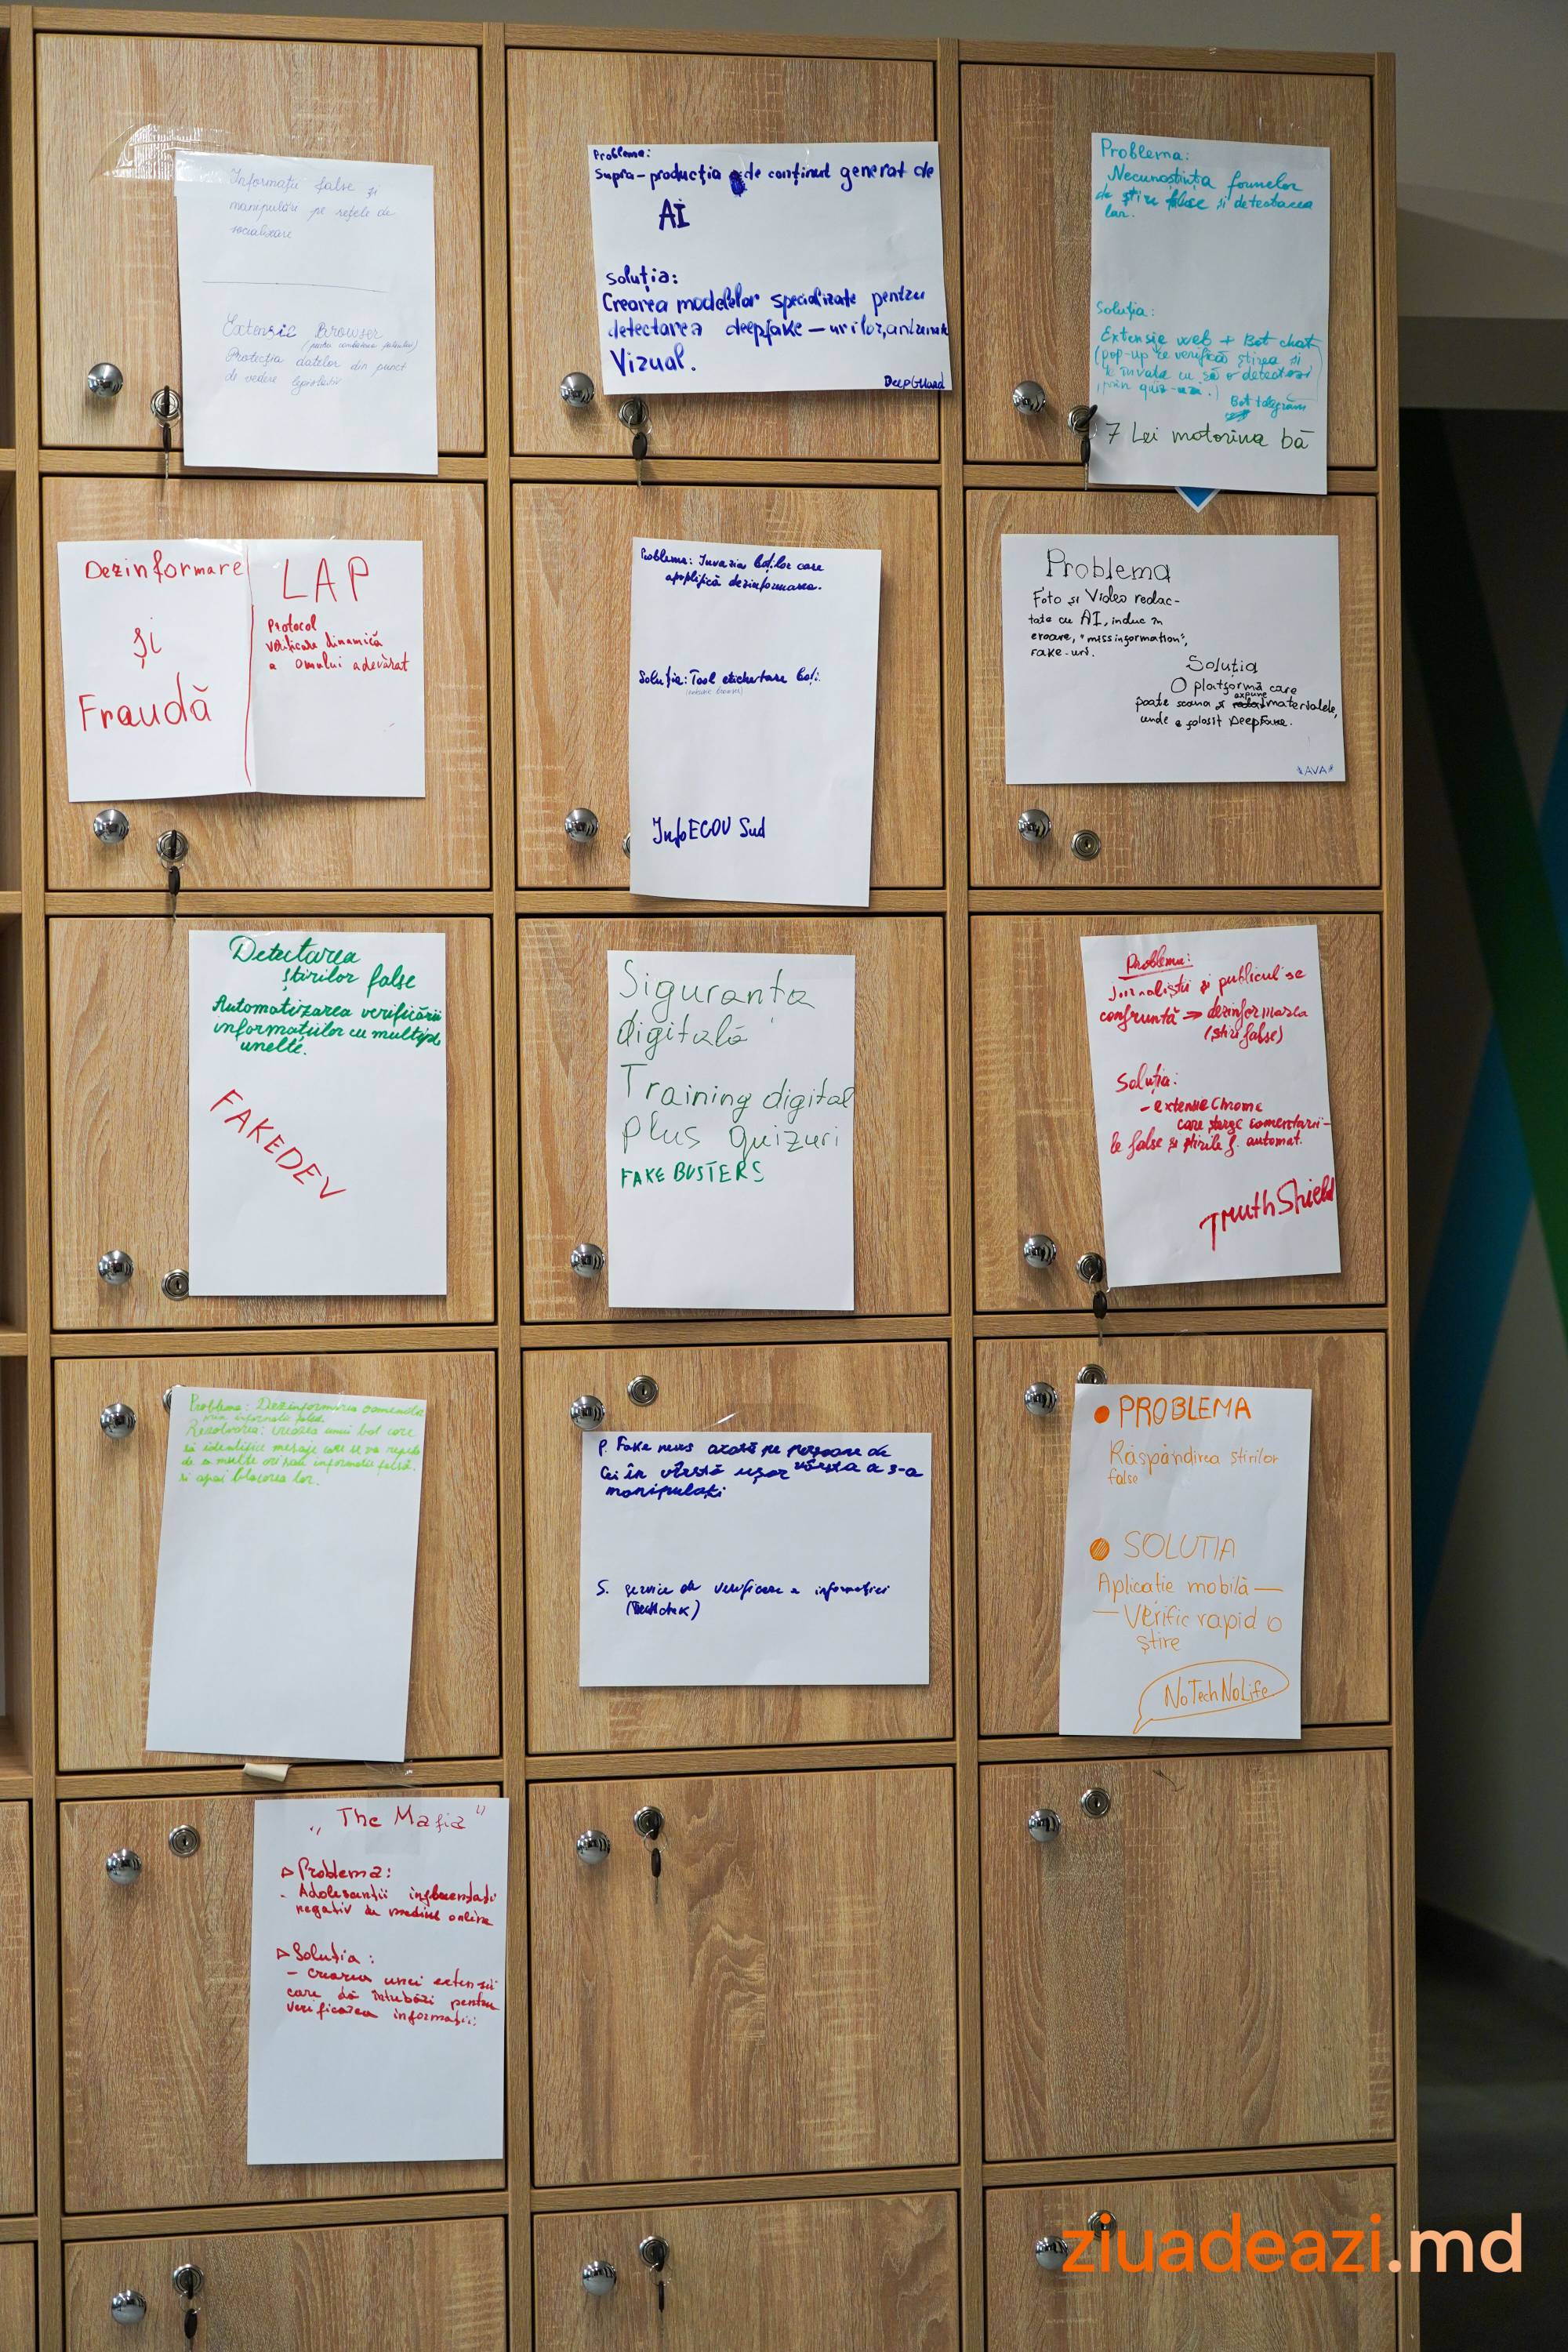 Informații false și
manipulări pe rețele de
socializare
Extensie Browser
Protecția datelor din punct
de vedere legislativ
Problema:
Supra-producția de conținut generat de
AI
Soluția:
Crearea modelelor specializate pentru
detectarea deepfake-urilor,
Vizual.
DeepGuard
Problema:
Necunoștința formelor
de știri false și detectarea
lor.
Soluția:
Extensie web + Bot chat
(pop-up ce verifică știrea și
te învață cu să o detectezi
prin quiz-uri.)
Bot telegram
7 Lei motorina bă
Dezinformare
și
Fraudă
LAP
Protocol
verificare dinamică
a omului adevărat
Problema: Invazia boților care
amplifică dezinformarea.
Soluția: Tool etichetare boți.
(extensie browser)
InfoECOU Sud
Problema
Foto și Video redac-
tate cu AI, induc în
eroare, "missinformation",
Fake-uri.
Soluția
O platformă care
poate scana și expune materialele,
unde e folosit DeepFake.
*AVA*
Detectarea
știrilor false
Automatizarea verificării
informațiilor cu multiple
unelte.
FAKEDEV
Siguranța
digitală
Training digital
plus quizuri
FAKE BUSTERS
Problema:
Jurnaliștii și publicul se
confruntă => dezinformarea
(știri false)
Soluția:
- extensie Chrome
care șterge comentarii-
le false și știrile f. automat.
TruthShield
Problema: Dezinformarea oamenilor
prin informații false.
Rezolvarea: crearea unui bot care
să identifice mesaje care se va repeta
de a multe ori sau informație falsă.
și apoi blocarea lor.
P. Fake news axată pe persoane de
Cei în vîrstă ușor vârsta a 3-a
manipulați
S. service de verificare a informației
PROBLEMA
Răspândirea știrilor
false
SOLUTIA
Aplicație mobilă —
— Verific rapid o
știre
NoTechNoLife
„The Mafia"
Problema:
- Adolescenții influențați
negativ de mediul online
Soluția:
- Crearea unei extensii
care dă întrebări pentru
verificarea informației
ziuadeazi.md